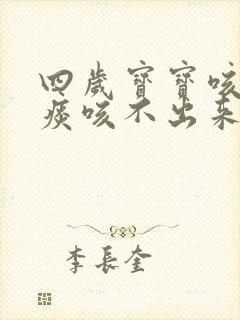 四歲寶寶咳
痰咳不出來
李長奎